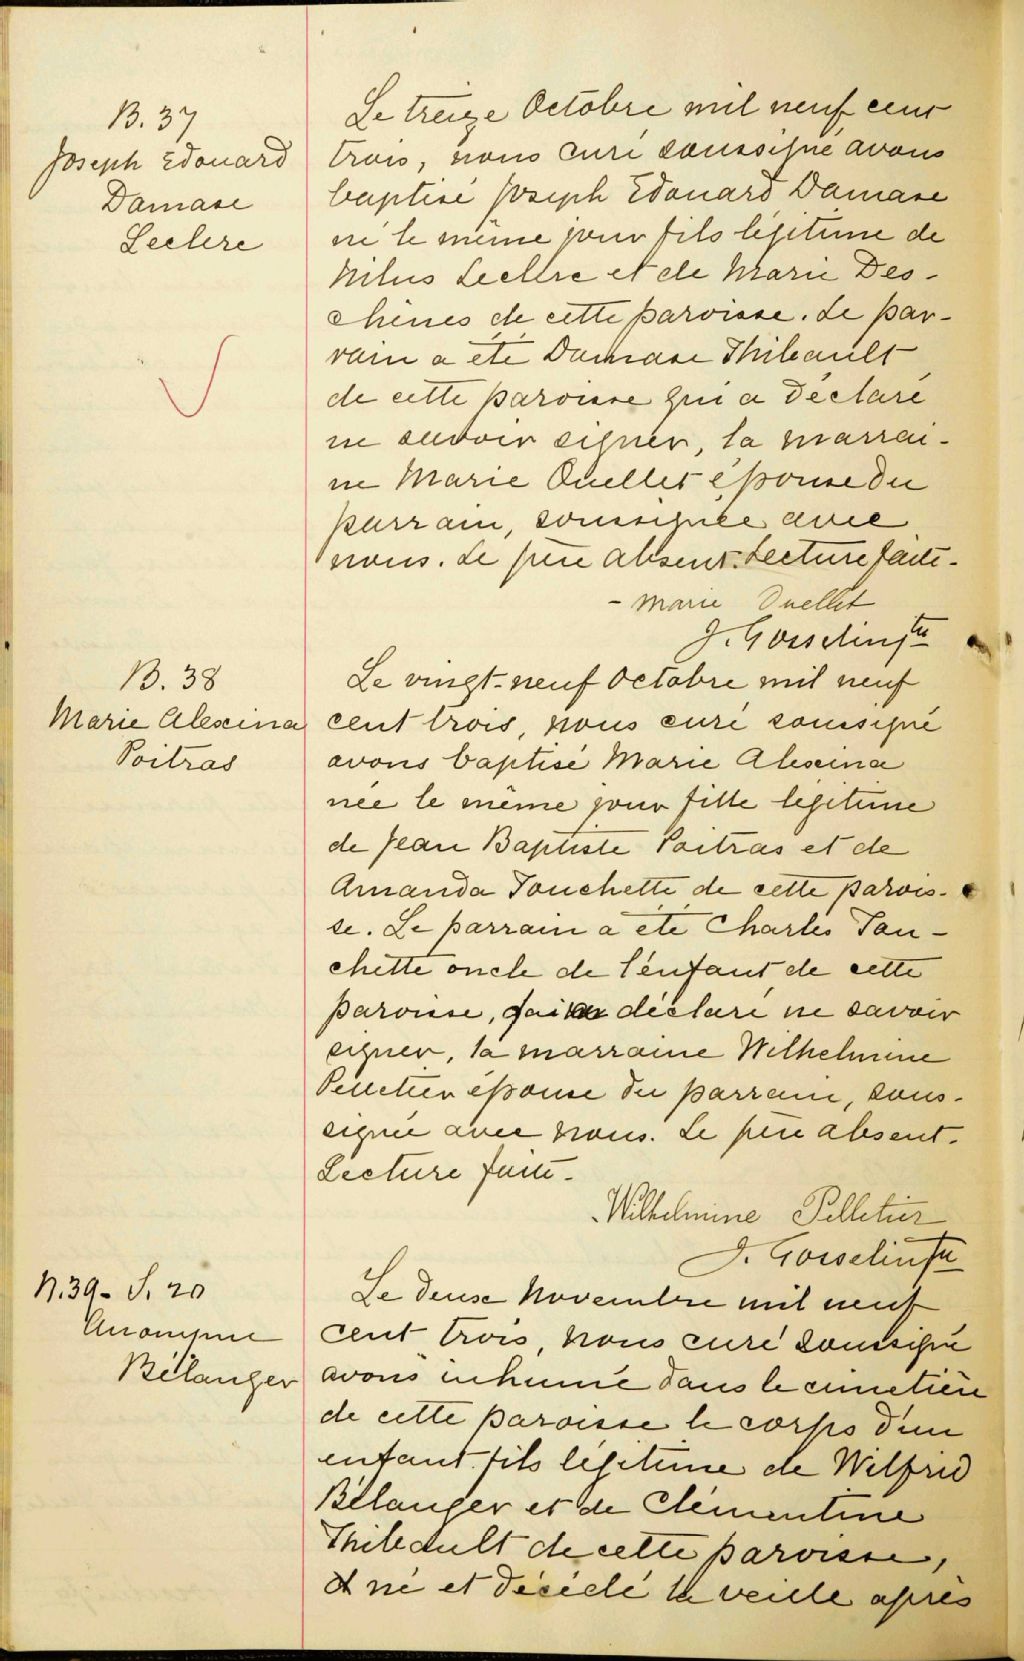 B. 37
Joseph Edouard
Damase
Leclerc
Le treize Octobre mil neuf cent
trois, nous curé soussigné avons
baptisé Joseph Edouard Damase
né le même jour fils légitime de
Nilus Leclerc et de Marie Des-
chènes de cette paroisse. Le par-
rain a été Damase Thibault
de cette paroisse qui a déclaré
ne savoir signer, la marrai-
ne Marie Ouellet épouse du
parrain, soussignée avec
nous. Le père absent. Lecture faite.
- Marie Ouellet
J. Gosselin ptre
B. 38
Marie Alexina
Poitras
Le vingt-neuf Octobre mil neuf
cent trois, nous curé soussigné
avons baptisé Marie Alexina
née le même jour fille légitime
de Jean Baptiste Poitras et de
Amanda Touchette de cette parois-
se. Le parrain a été Charles Tou-
chette oncle de l'enfant de cette
paroisse, qui a déclaré ne savoir
signer, la marraine Wilhelmine
Pelletier épouse du parrain, sous-
signée avec nous. Le père absent.
Lecture faite.
Wilhelmine Pelletier
J. Gosselin ptre
N.39- S. 20
Anonyme
Bélanger
Le deux Novembre mil neuf
cent trois, nous curé soussigné
avons inhumé dans le cimetière
de cette paroisse le corps d'un
enfant fils légitime de Wilfrid
Bélanger et de Clémentine
Thibault de cette paroisse,
né et décédé la veille après